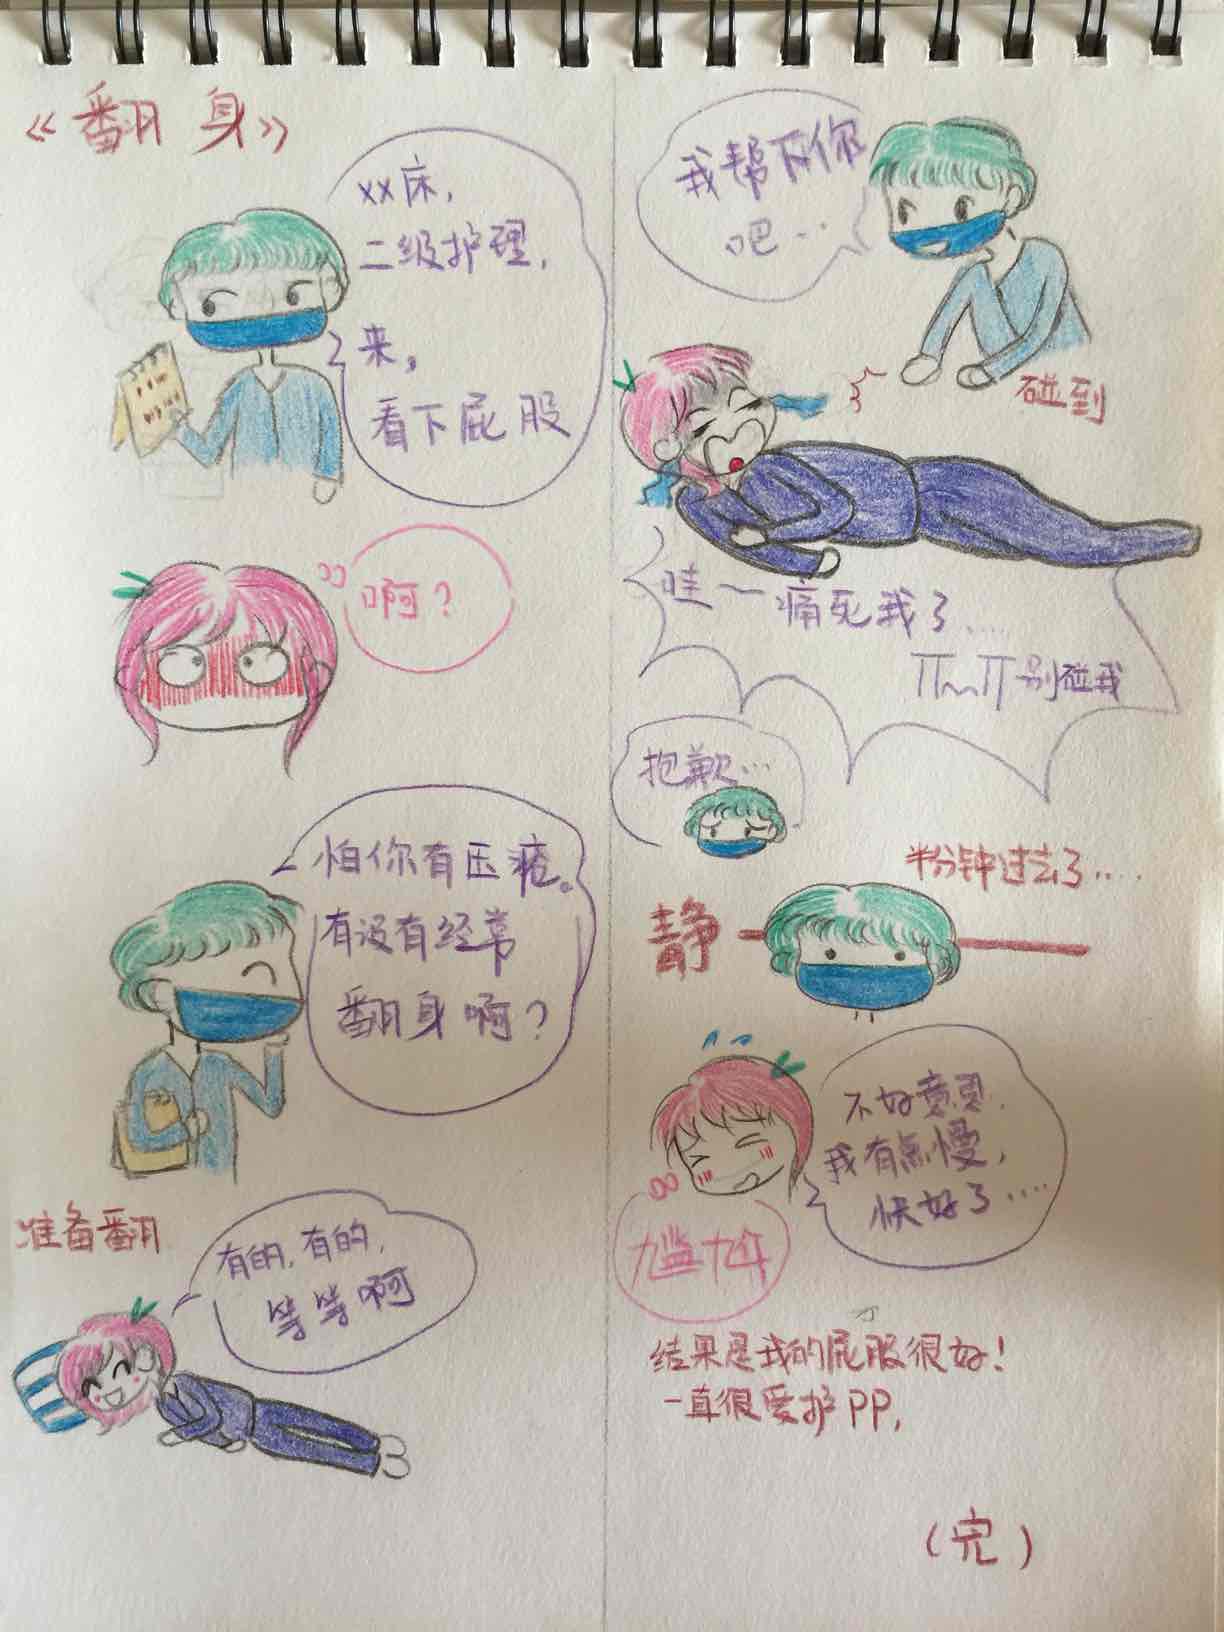 《翻身》
xx床，
二级护理，
来，
看下屁股
啊？
怕你有压疮。
有没有经常
翻身啊？
准备翻
有的，有的，
等等啊
我帮下你
吧…
碰到
哇~痛死我了……
别碰我
抱歉…
半分钟过去了……
静
不好意思，
我有点慢，
快好了……
尴尬
结果是我的屁股很好！
一直很爱护PP，
（完）